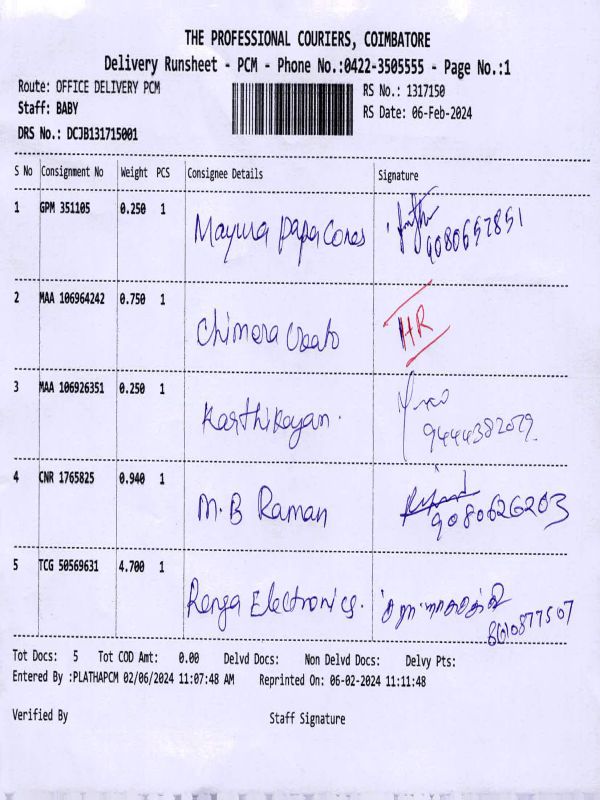 THE PROFESSIONAL COURIERS, COIMBATORE
Delivery Runsheet - PCM - Phone No.:0422-3505555 - Page No.:1
Route: OFFICE DELIVERY PCM RS No.: 1317150
Staff: BABY RS Date: 06-Feb-2024
DRS No.: DCJB131715001
S No Consignment No Weight PCS Consignee Details Signature
1 GPM 351105 0.250 1 Mayura papa Cones 9080657851
2 MAA 106964242 0.750 1 Chimera HR
3 MAA 106926351 0.250 1 Karthikeyan. 9444382079
4 CNR 1765825 0.940 1 M. B Raman 9080626203
5 TCG 50569631 4.700 1 Renga Electronics.
Tot Docs: 5 Tot COD Amt: 0.00 Delvd Docs: Non Delvd Docs: Delvy Pts:
Entered By :PLATHAPCM 02/06/2024 11:07:48 AM Reprinted On: 06-02-2024 11:11:48
Verified By Staff Signature